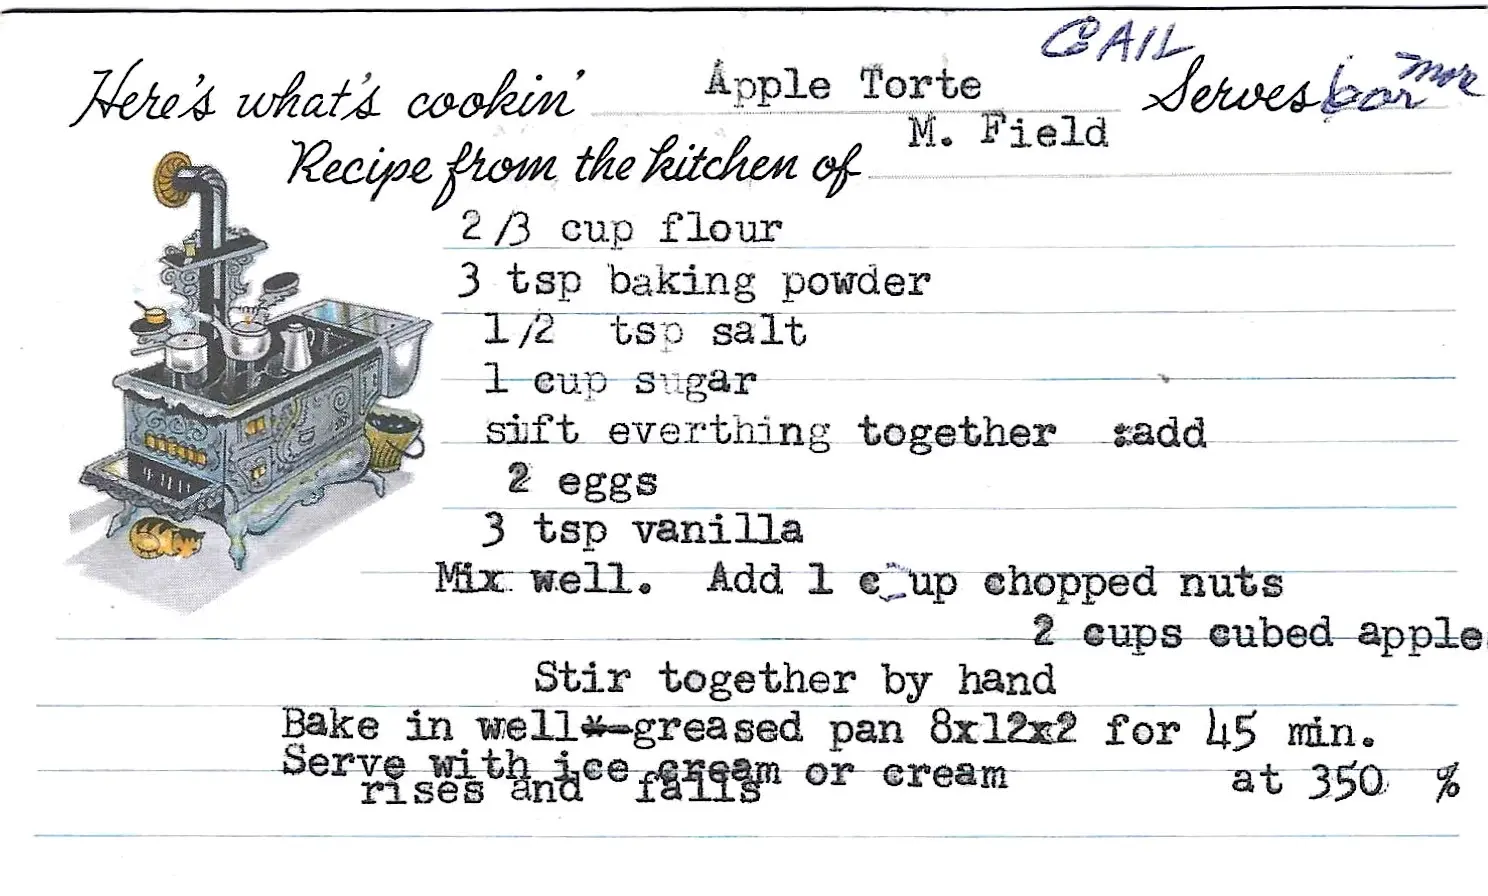 GAIL
Here's what's cookin' Apple Torte Serves 6 or more
M. Field
Recipe from the kitchen of
2/3 cup flour
3 tsp baking powder
1/2 tsp salt
1 cup sugar
sift everthing together :add
2 eggs
3 tsp vanilla
Mix well. Add 1 c up chopped nuts
2 cups cubed apple
Stir together by hand
Bake in well-greased pan 8x12x2 for 45 min.
Serve with ice cream or cream
rises and falls at 350 %